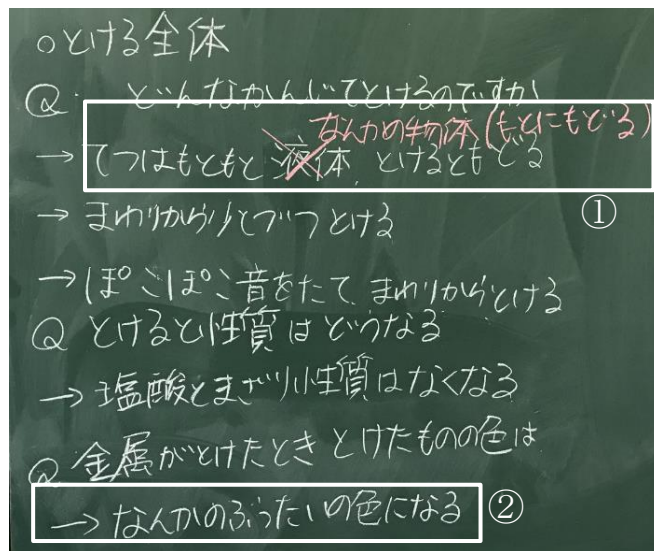 ○とける全体
Q どんなかんじでとけるのですか
なんかの物体(もとにもどる)
→てつはもともと液体、とけるともどる
①
→まわりから少しづつとける
→ぽこぽこ音をたて、まわりからとける
Q とけると性質はどうなる
→塩酸とまざり性質はなくなる
Q 金属がとけたとき とけたものの色は
→なんかのぶったいの色になる
②